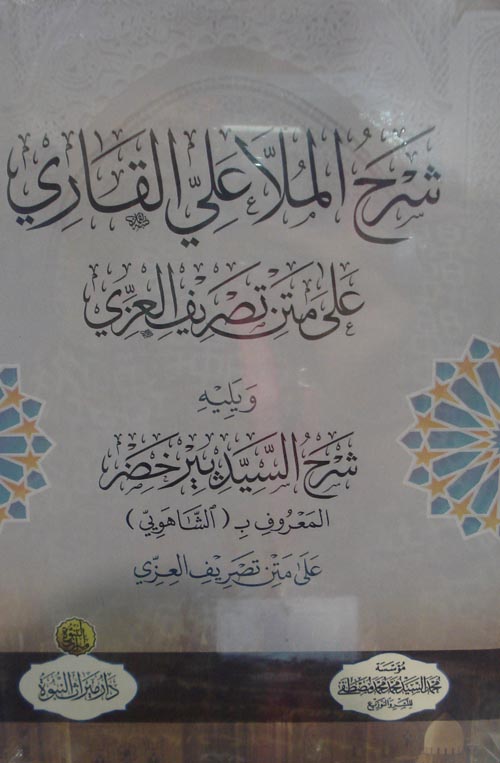 شَرْحُ المُلاَّ عَلِيّ القَارِي
عَلَى مَتْنِ تَصْرِيفِ العِزِّي
وَيَلِيْهِ
شَرْحُ السَّيِّدِ بِيْر خَضِر
المَعْرُوفِ بِـ (الشَّاهُوِيّ)
عَلَى مَتْنِ تَصْرِيفِ العِزِّي
دَارُ مِيرَاثِ النُّبُوَّة
مُؤَسَّسَة
مُحَمَّد السَّيِّد مُحَمَّد مُحَمَّد مُصْطَفَى
لِلنَّشْرِ وَالتَّوْزِيعِ